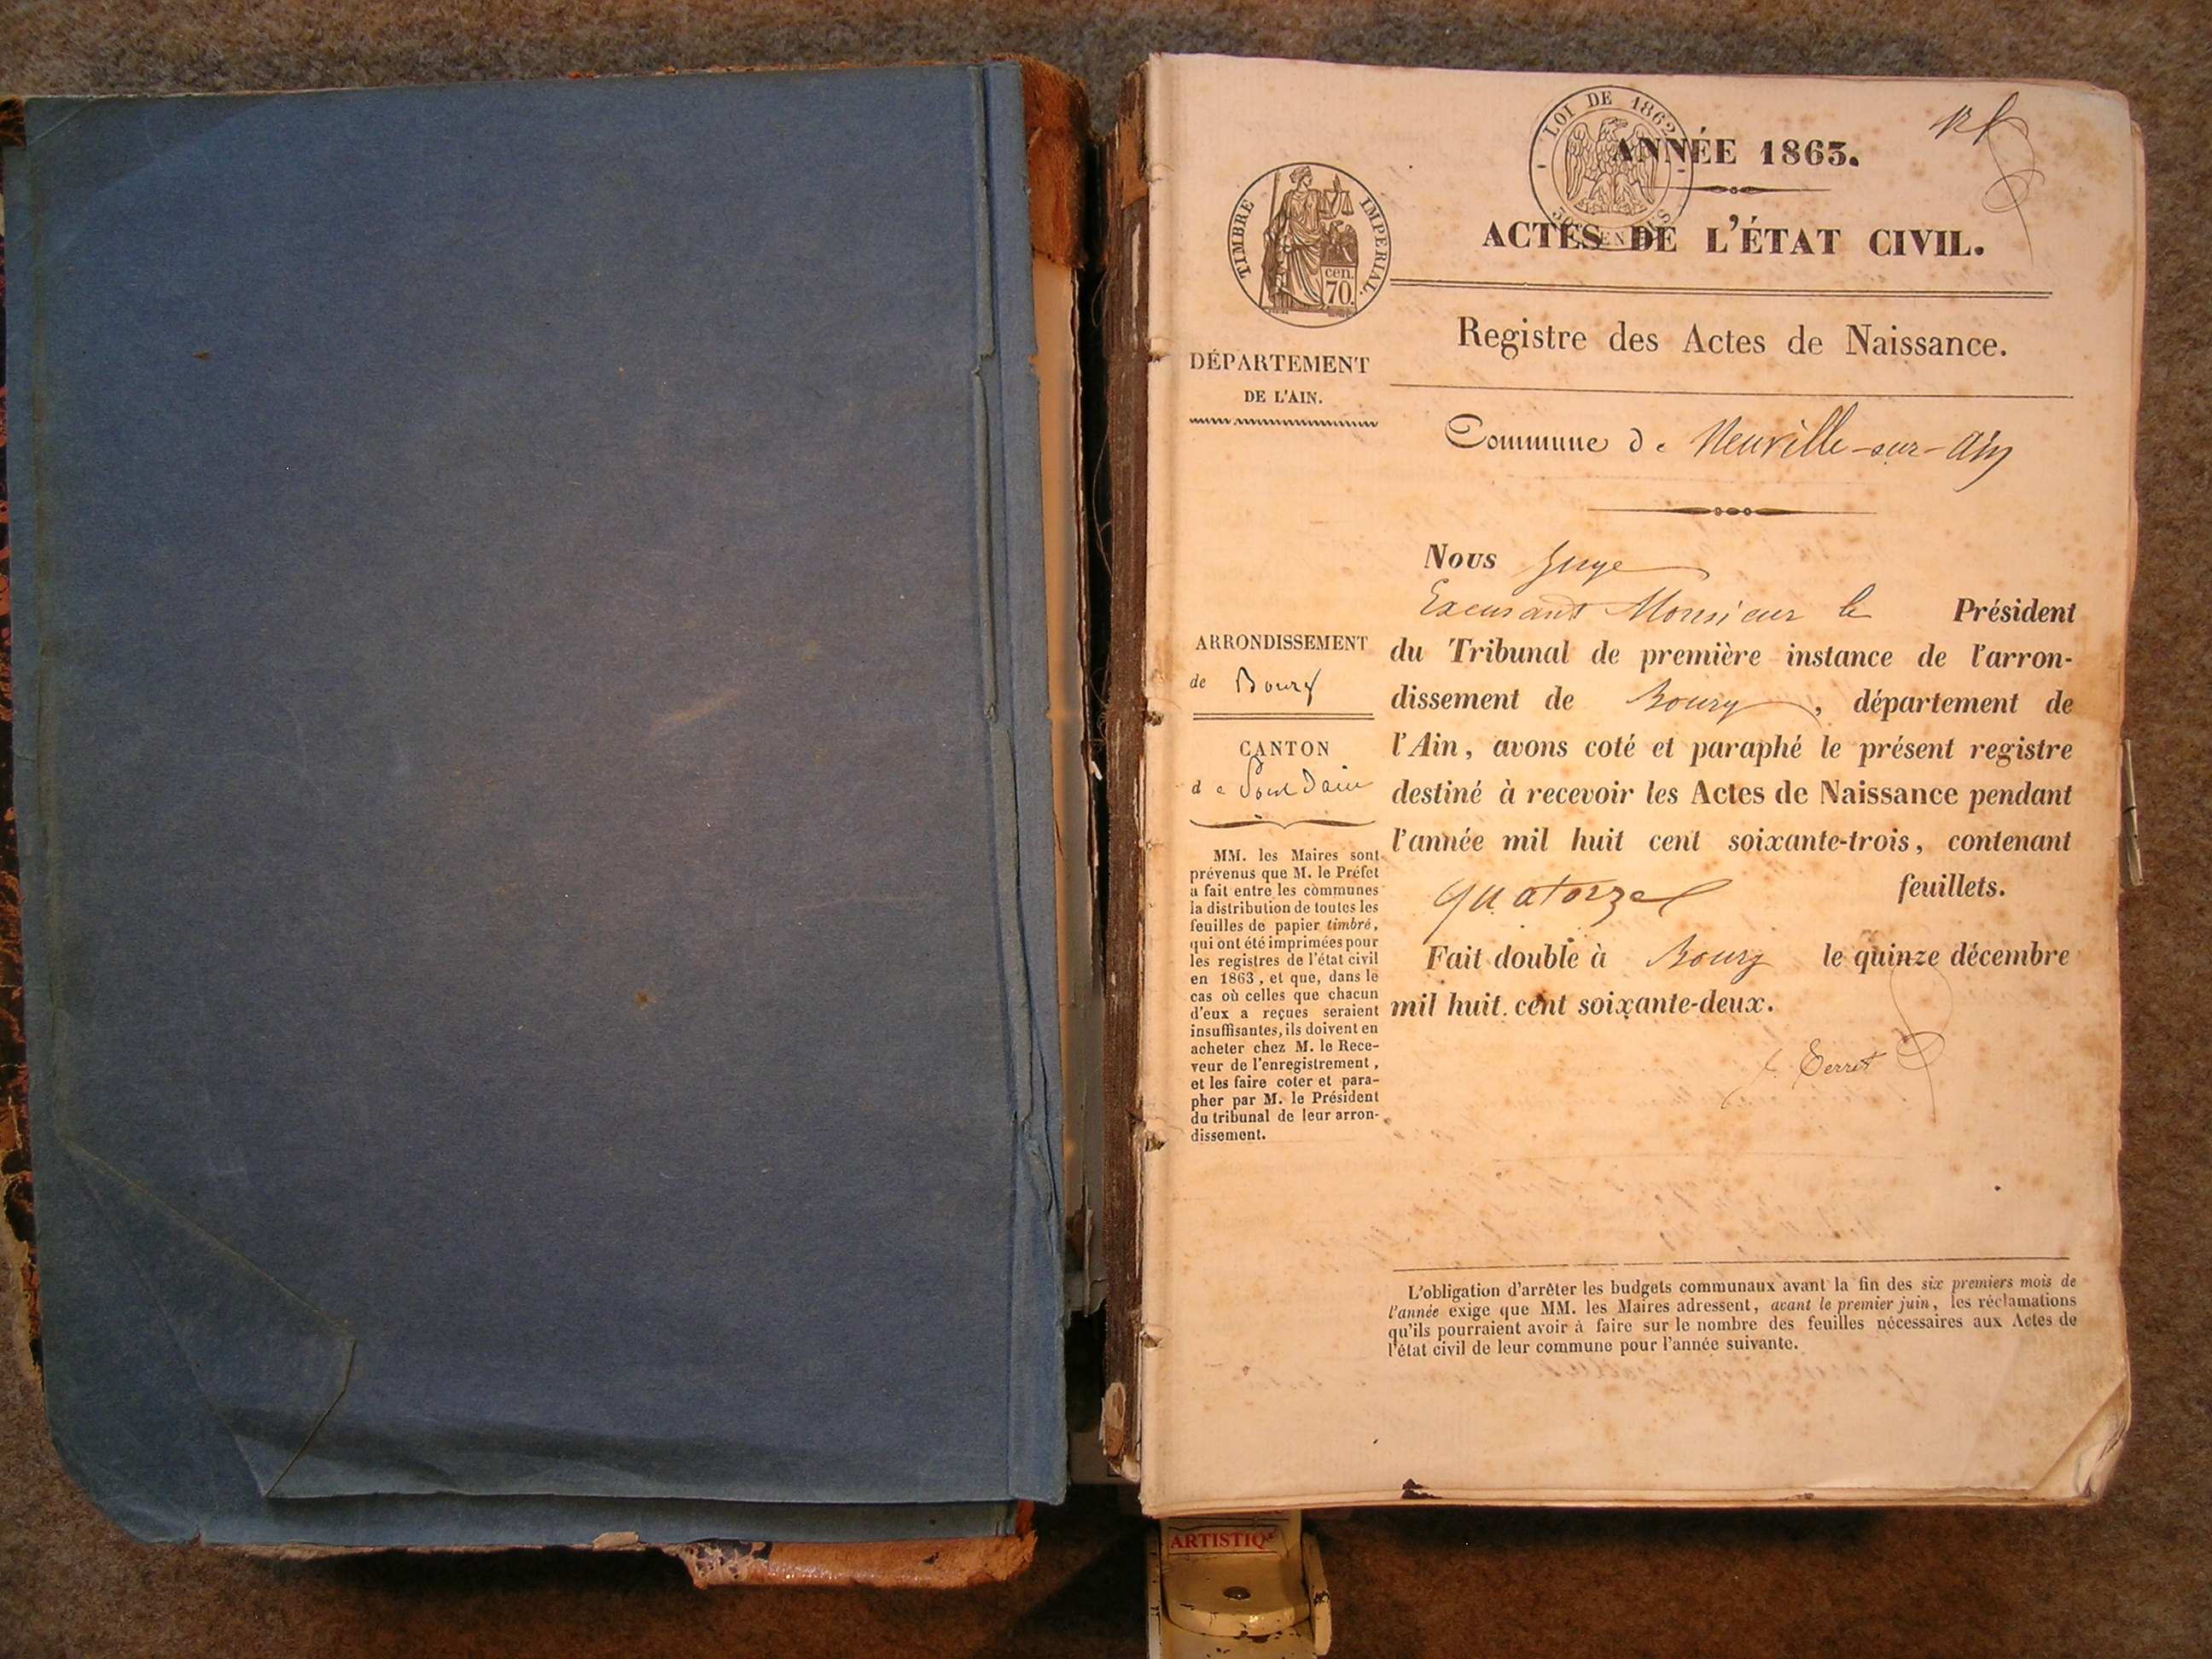 LOI DE 1862
ANNÉE 1863.
TIMBRE IMPERIAL.
cen.
70.
ACTES DE L'ÉTAT CIVIL.
Registre des Actes de Naissance.
DÉPARTEMENT
DE L'AIN.
Commune de Neuville-sur-Ain
Nous Juge
Excusant Monsieur le Président
du Tribunal de première instance de l'arron-
dissement de Bourg, département de
l'Ain, avons coté et paraphé le présent registre
destiné à recevoir les Actes de Naissance pendant
l'année mil huit cent soixante-trois, contenant
quatorze feuillets.
Fait double à Bourg le quinze décembre
mil huit cent soixante-deux.
ARRONDISSEMENT
de Bourg
CANTON
de Pont Dain
MM. les Maires sont
prévenus que M. le Préfet
a fait entre les communes
la distribution de toutes les
feuilles de papier timbré,
qui ont été imprimées pour
les registres de l'état civil
en 1863, et que, dans le
cas où celles que chacun
d'eux a reçues seraient
insuffisantes, ils doivent en
acheter chez M. le Rece-
veur de l'enregistrement,
et les faire coter et para-
pher par M. le Président
du tribunal de leur arron-
dissement.
L'obligation d'arrêter les budgets communaux avant la fin des six premiers mois de
l'année exige que MM. les Maires adressent, avant le premier juin, les réclamations
qu'ils pourraient avoir à faire sur le nombre des feuilles nécessaires aux Actes de
l'état civil de leur commune pour l'année suivante.
ARTISTIQ